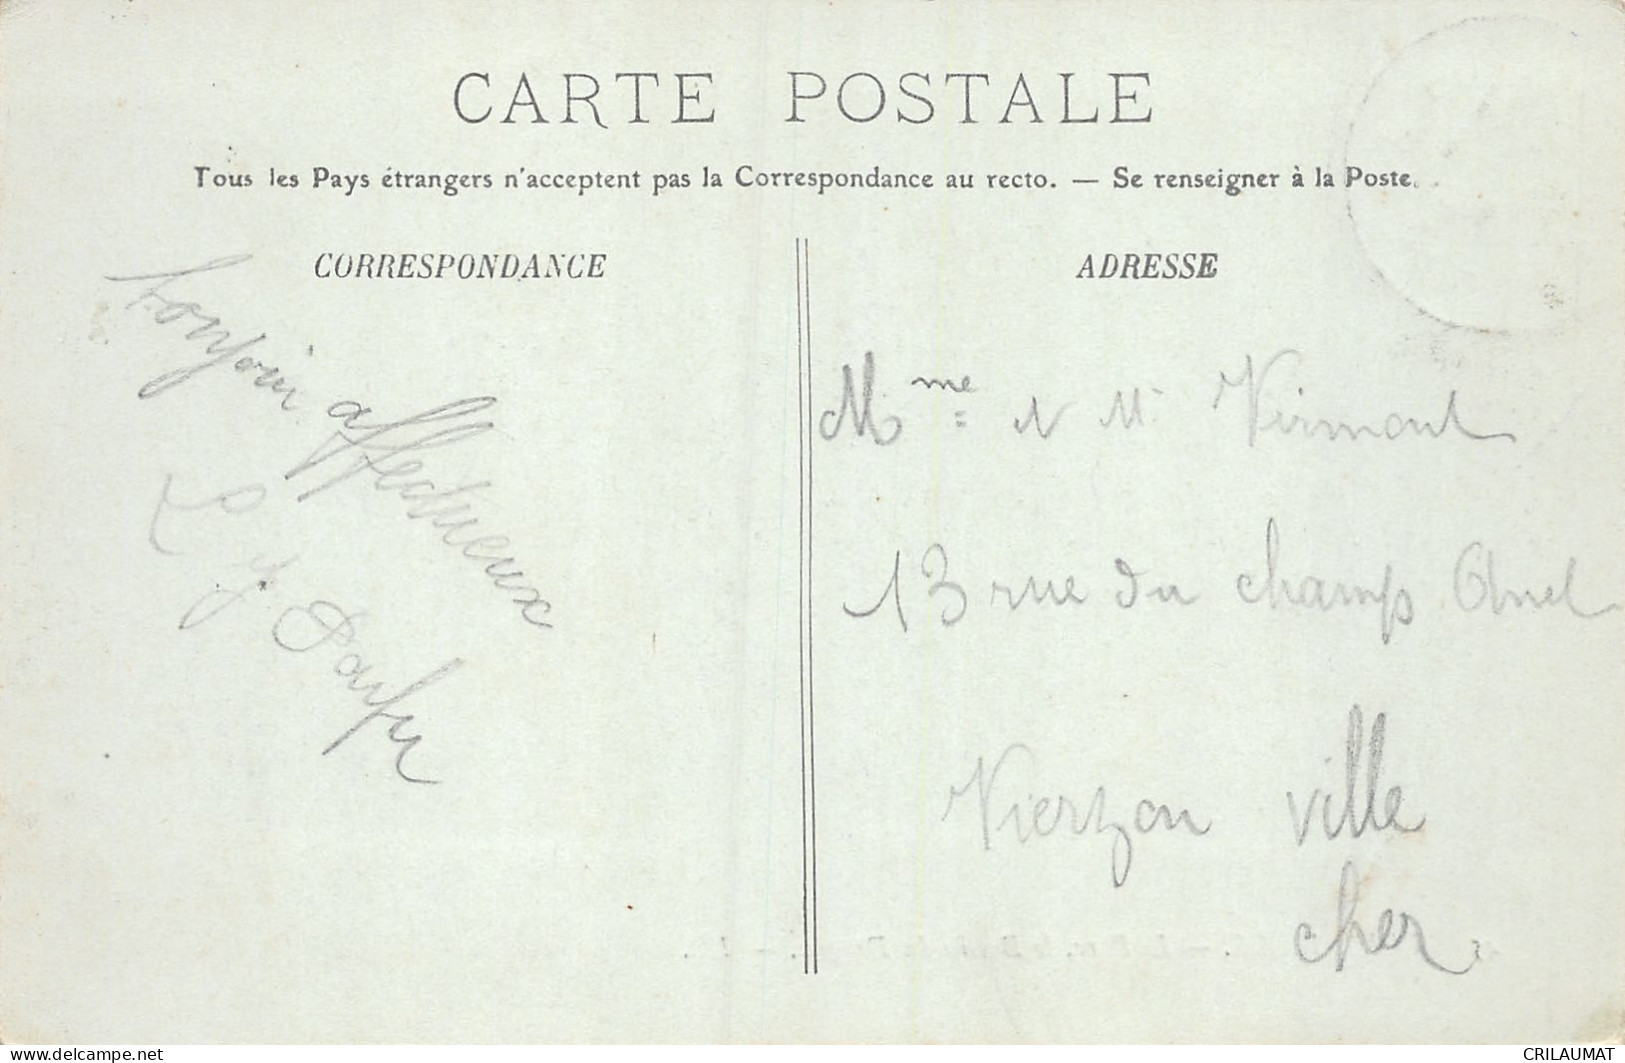 CARTE POSTALE
Tous les Pays étrangers n'acceptent pas la Correspondance au recto. — Se renseigner à la Poste.
CORRESPONDANCE
bonjour affectueux
ADRESSE
Mme & Mr Virmont
13 rue du champ Anel
Vierzon ville
cher
www.delcampe.net
CRILAUMAT